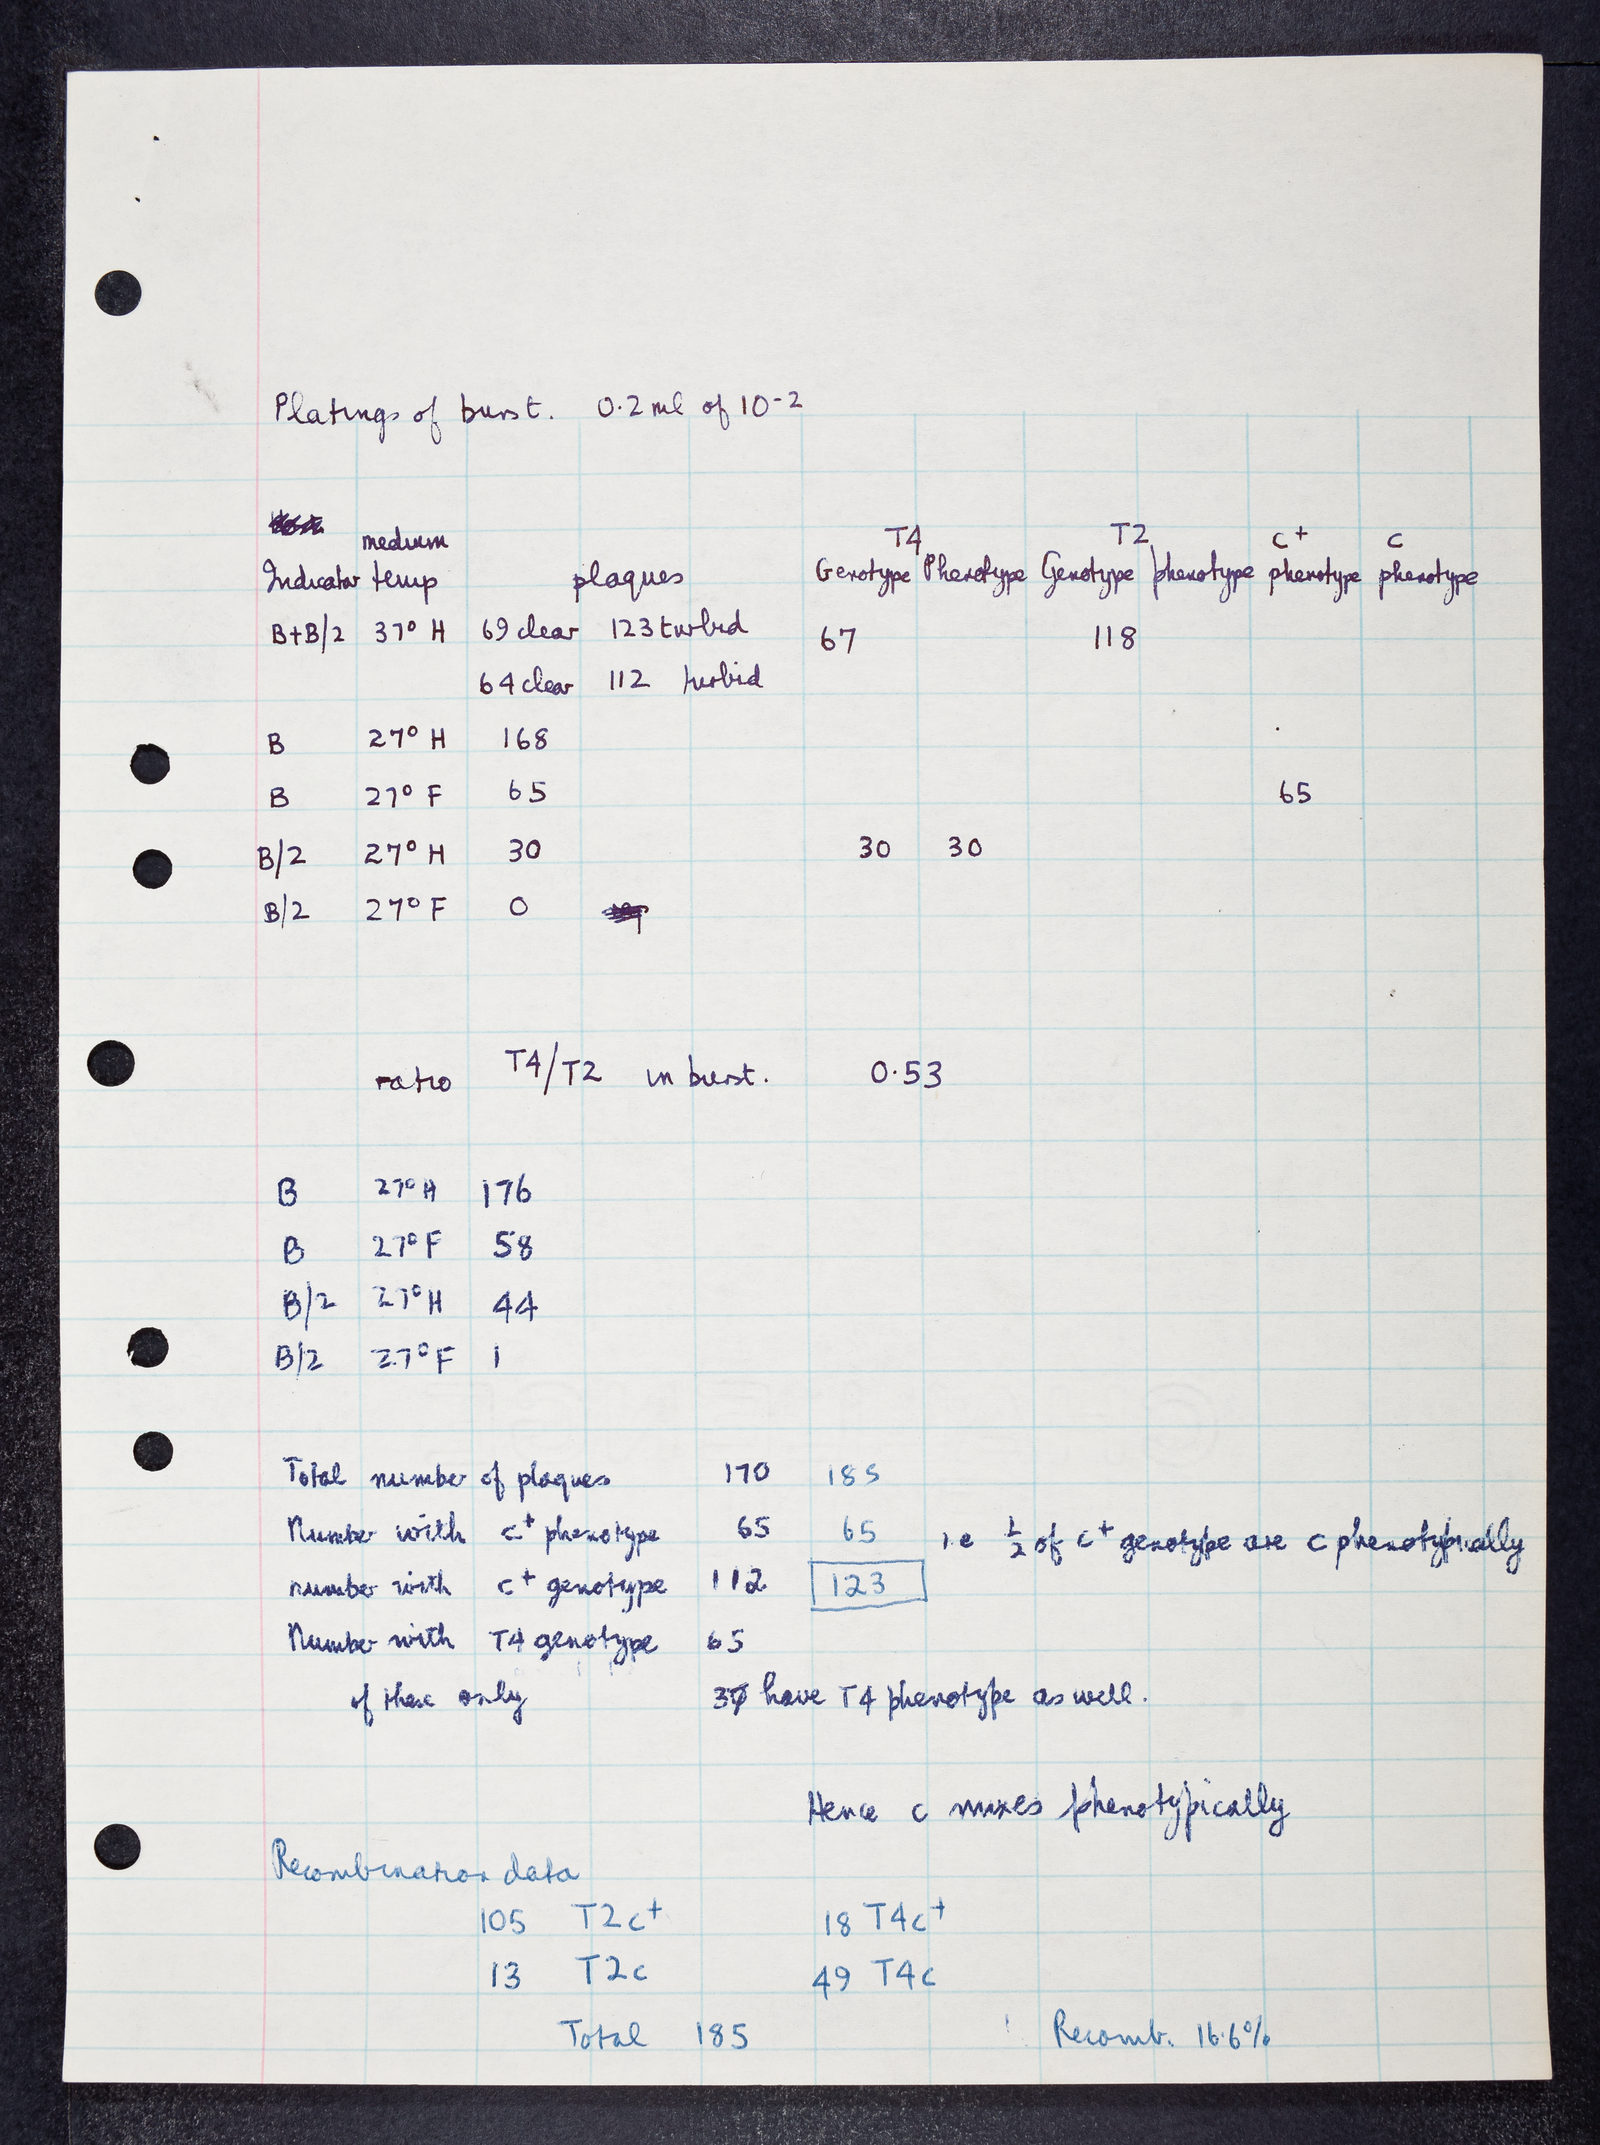 Platings of burst. 0.2 ml of 10-2
T4 T2 c+ c
medium
Indicator temp plaques Genotype Phenotype Genotype phenotype phenotype phenotype
B+B/2 37° H 69 clear 123 turbid 67 118
64 clear 112 turbid
B 27° H 168
B 27° F 65 65
B/2 27° H 30 30 30
B/2 27° F 0
ratio T4/T2 in burst. 0.53
B 27° H 176
B 27° F 58
B/2 27° H 44
B/2 27° F 1
Total number of plaques 170 185
Number with c+ phenotype 65 65 i.e 1/2 of c+ genotype are c phenotypically
number with c+ genotype 112 123
Number with T4 genotype 65
of these only have T4 phenotype as well.
Hence c mixes phenotypically
Recombination data
105 T2c+ 18 T4c+
13 T2c 49 T4c
Total 185 Recomb. 16.6%